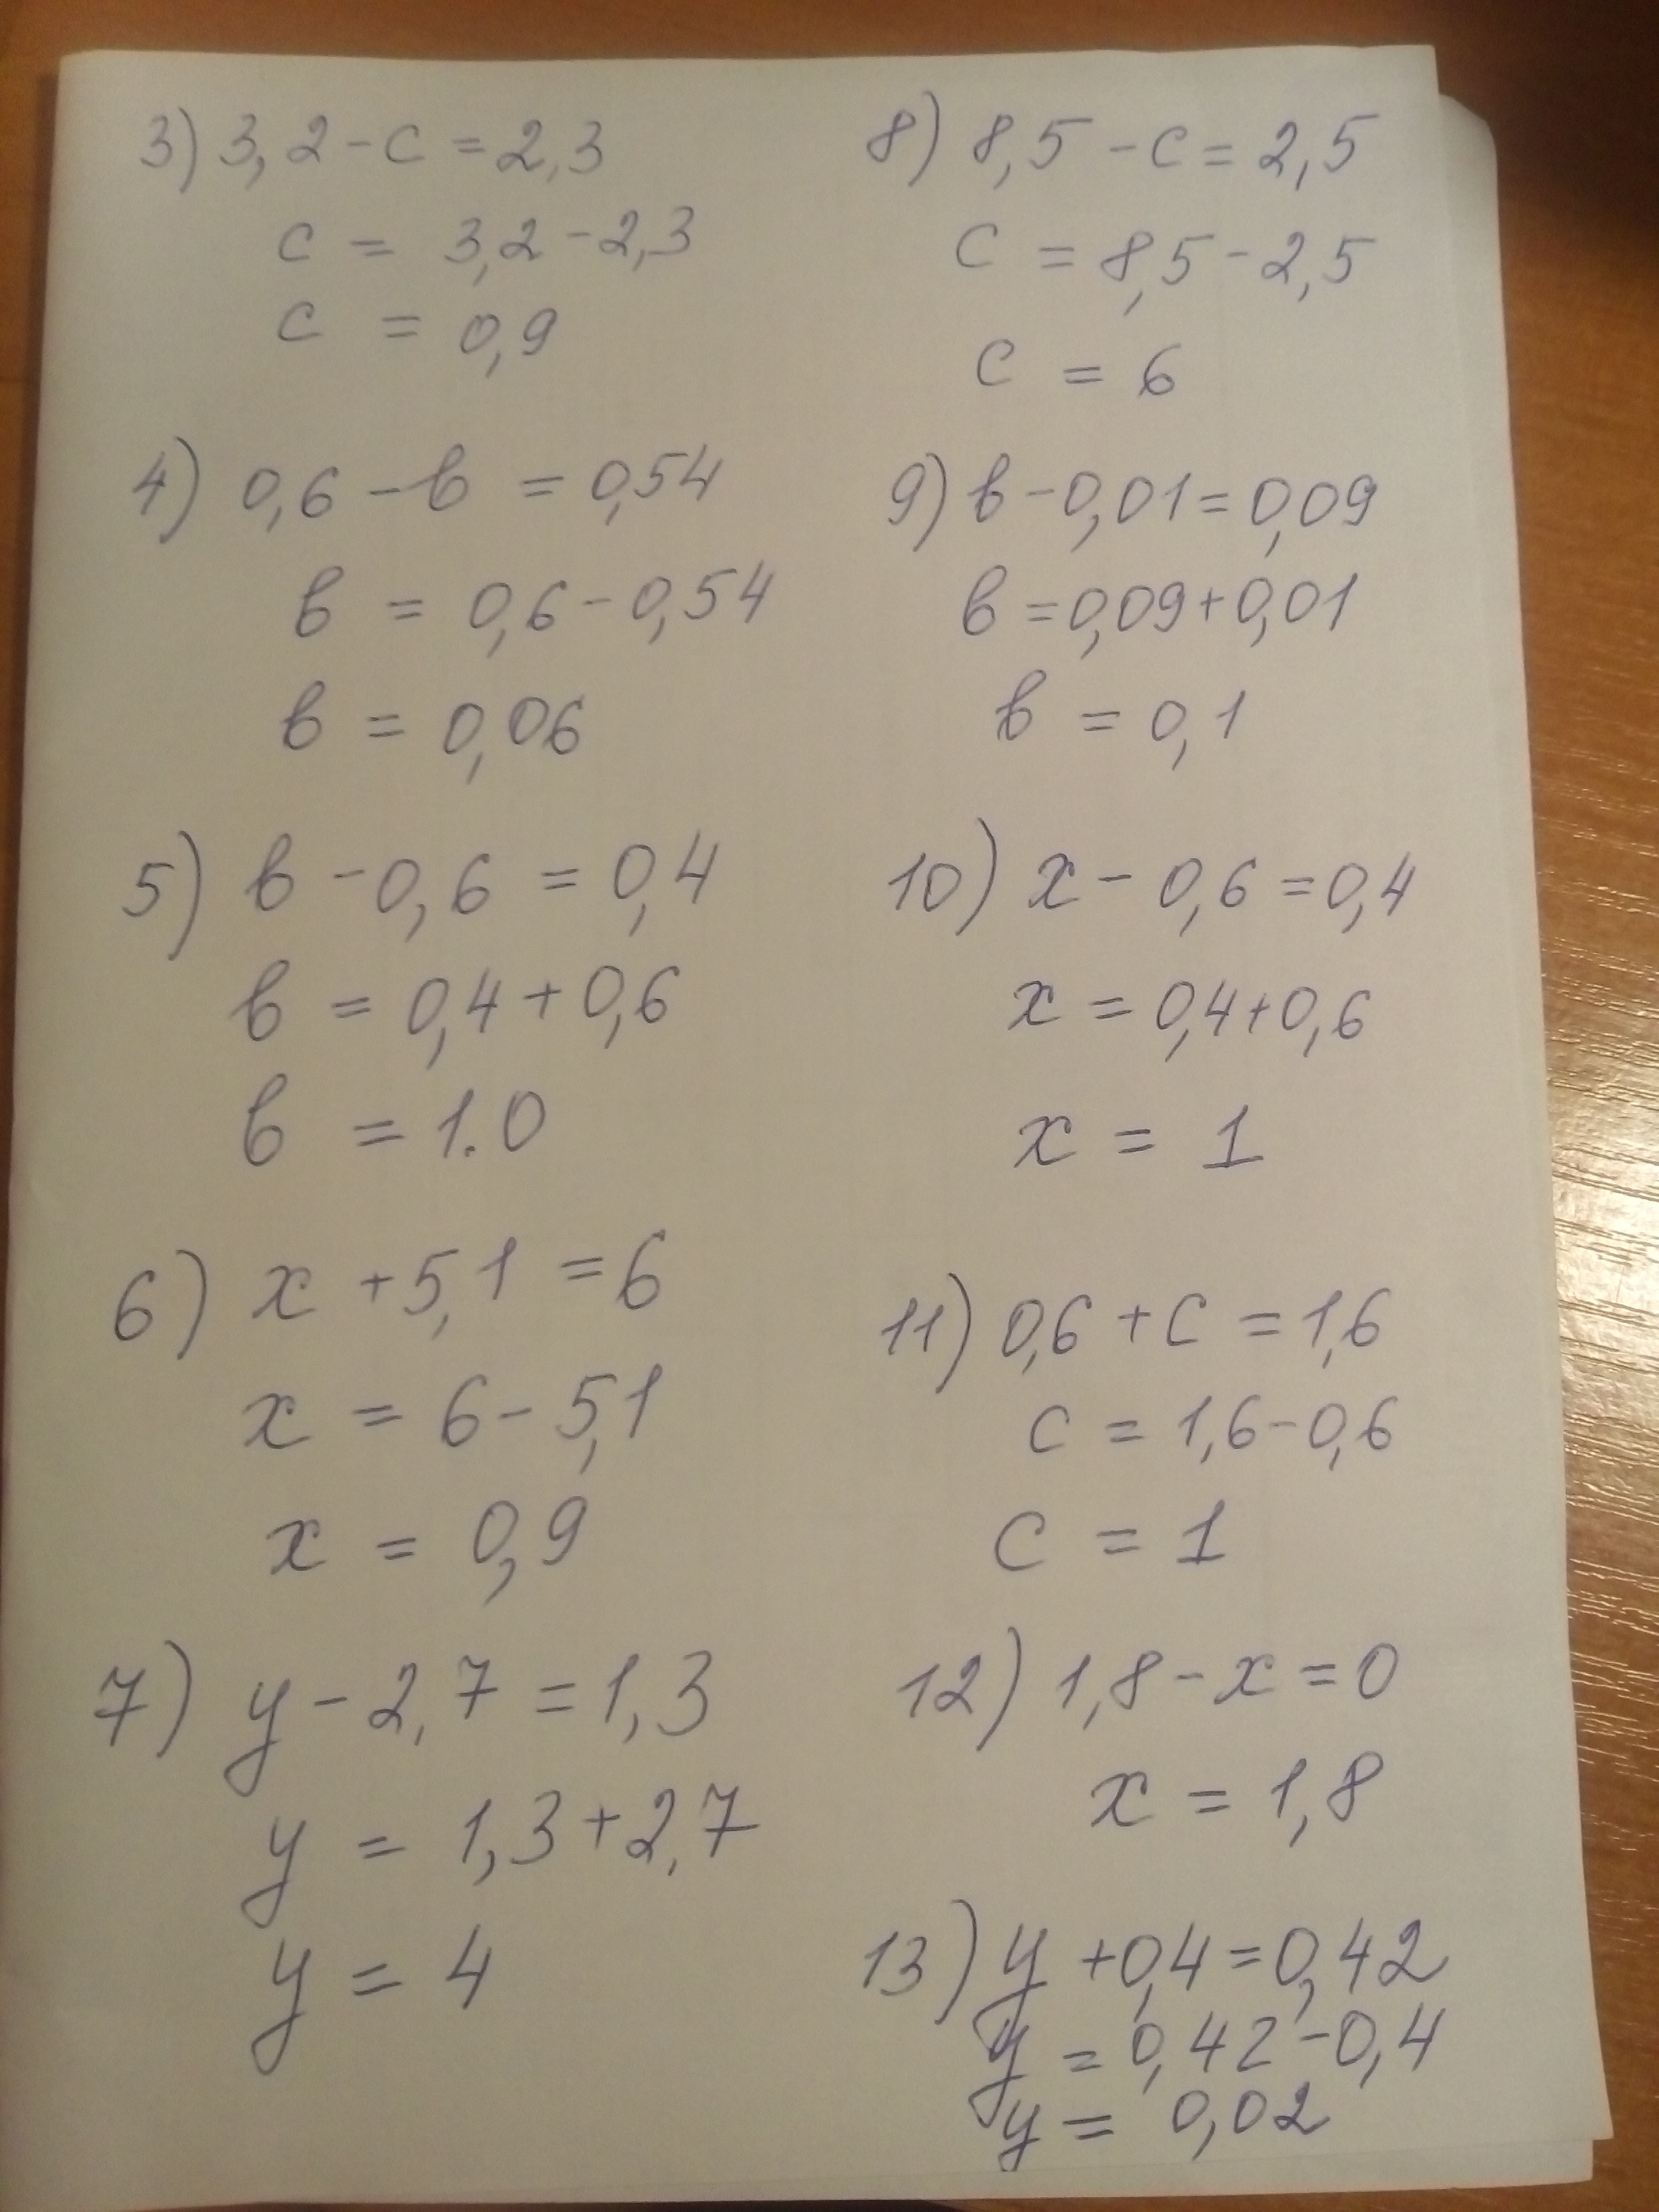 3) 3,2 - c = 2,3
c = 3,2 - 2,3
c = 0,9
4) 0,6 - в = 0,54
в = 0,6 - 0,54
в = 0,06
5) в - 0,6 = 0,4
в = 0,4 + 0,6
в = 1.0
6) x + 5,1 = 6
x = 6 - 5,1
x = 0,9
7) y - 2,7 = 1,3
y = 1,3 + 2,7
y = 4
8) 8,5 - c = 2,5
c = 8,5 - 2,5
c = 6
9) в - 0,01 = 0,09
в = 0,09 + 0,01
в = 0,1
10) x - 0,6 = 0,4
x = 0,4 + 0,6
x = 1
11) 0,6 + c = 1,6
c = 1,6 - 0,6
c = 1
12) 1,8 - x = 0
x = 1,8
13) y + 0,4 = 0,42
y = 0,42 - 0,4
y = 0,02